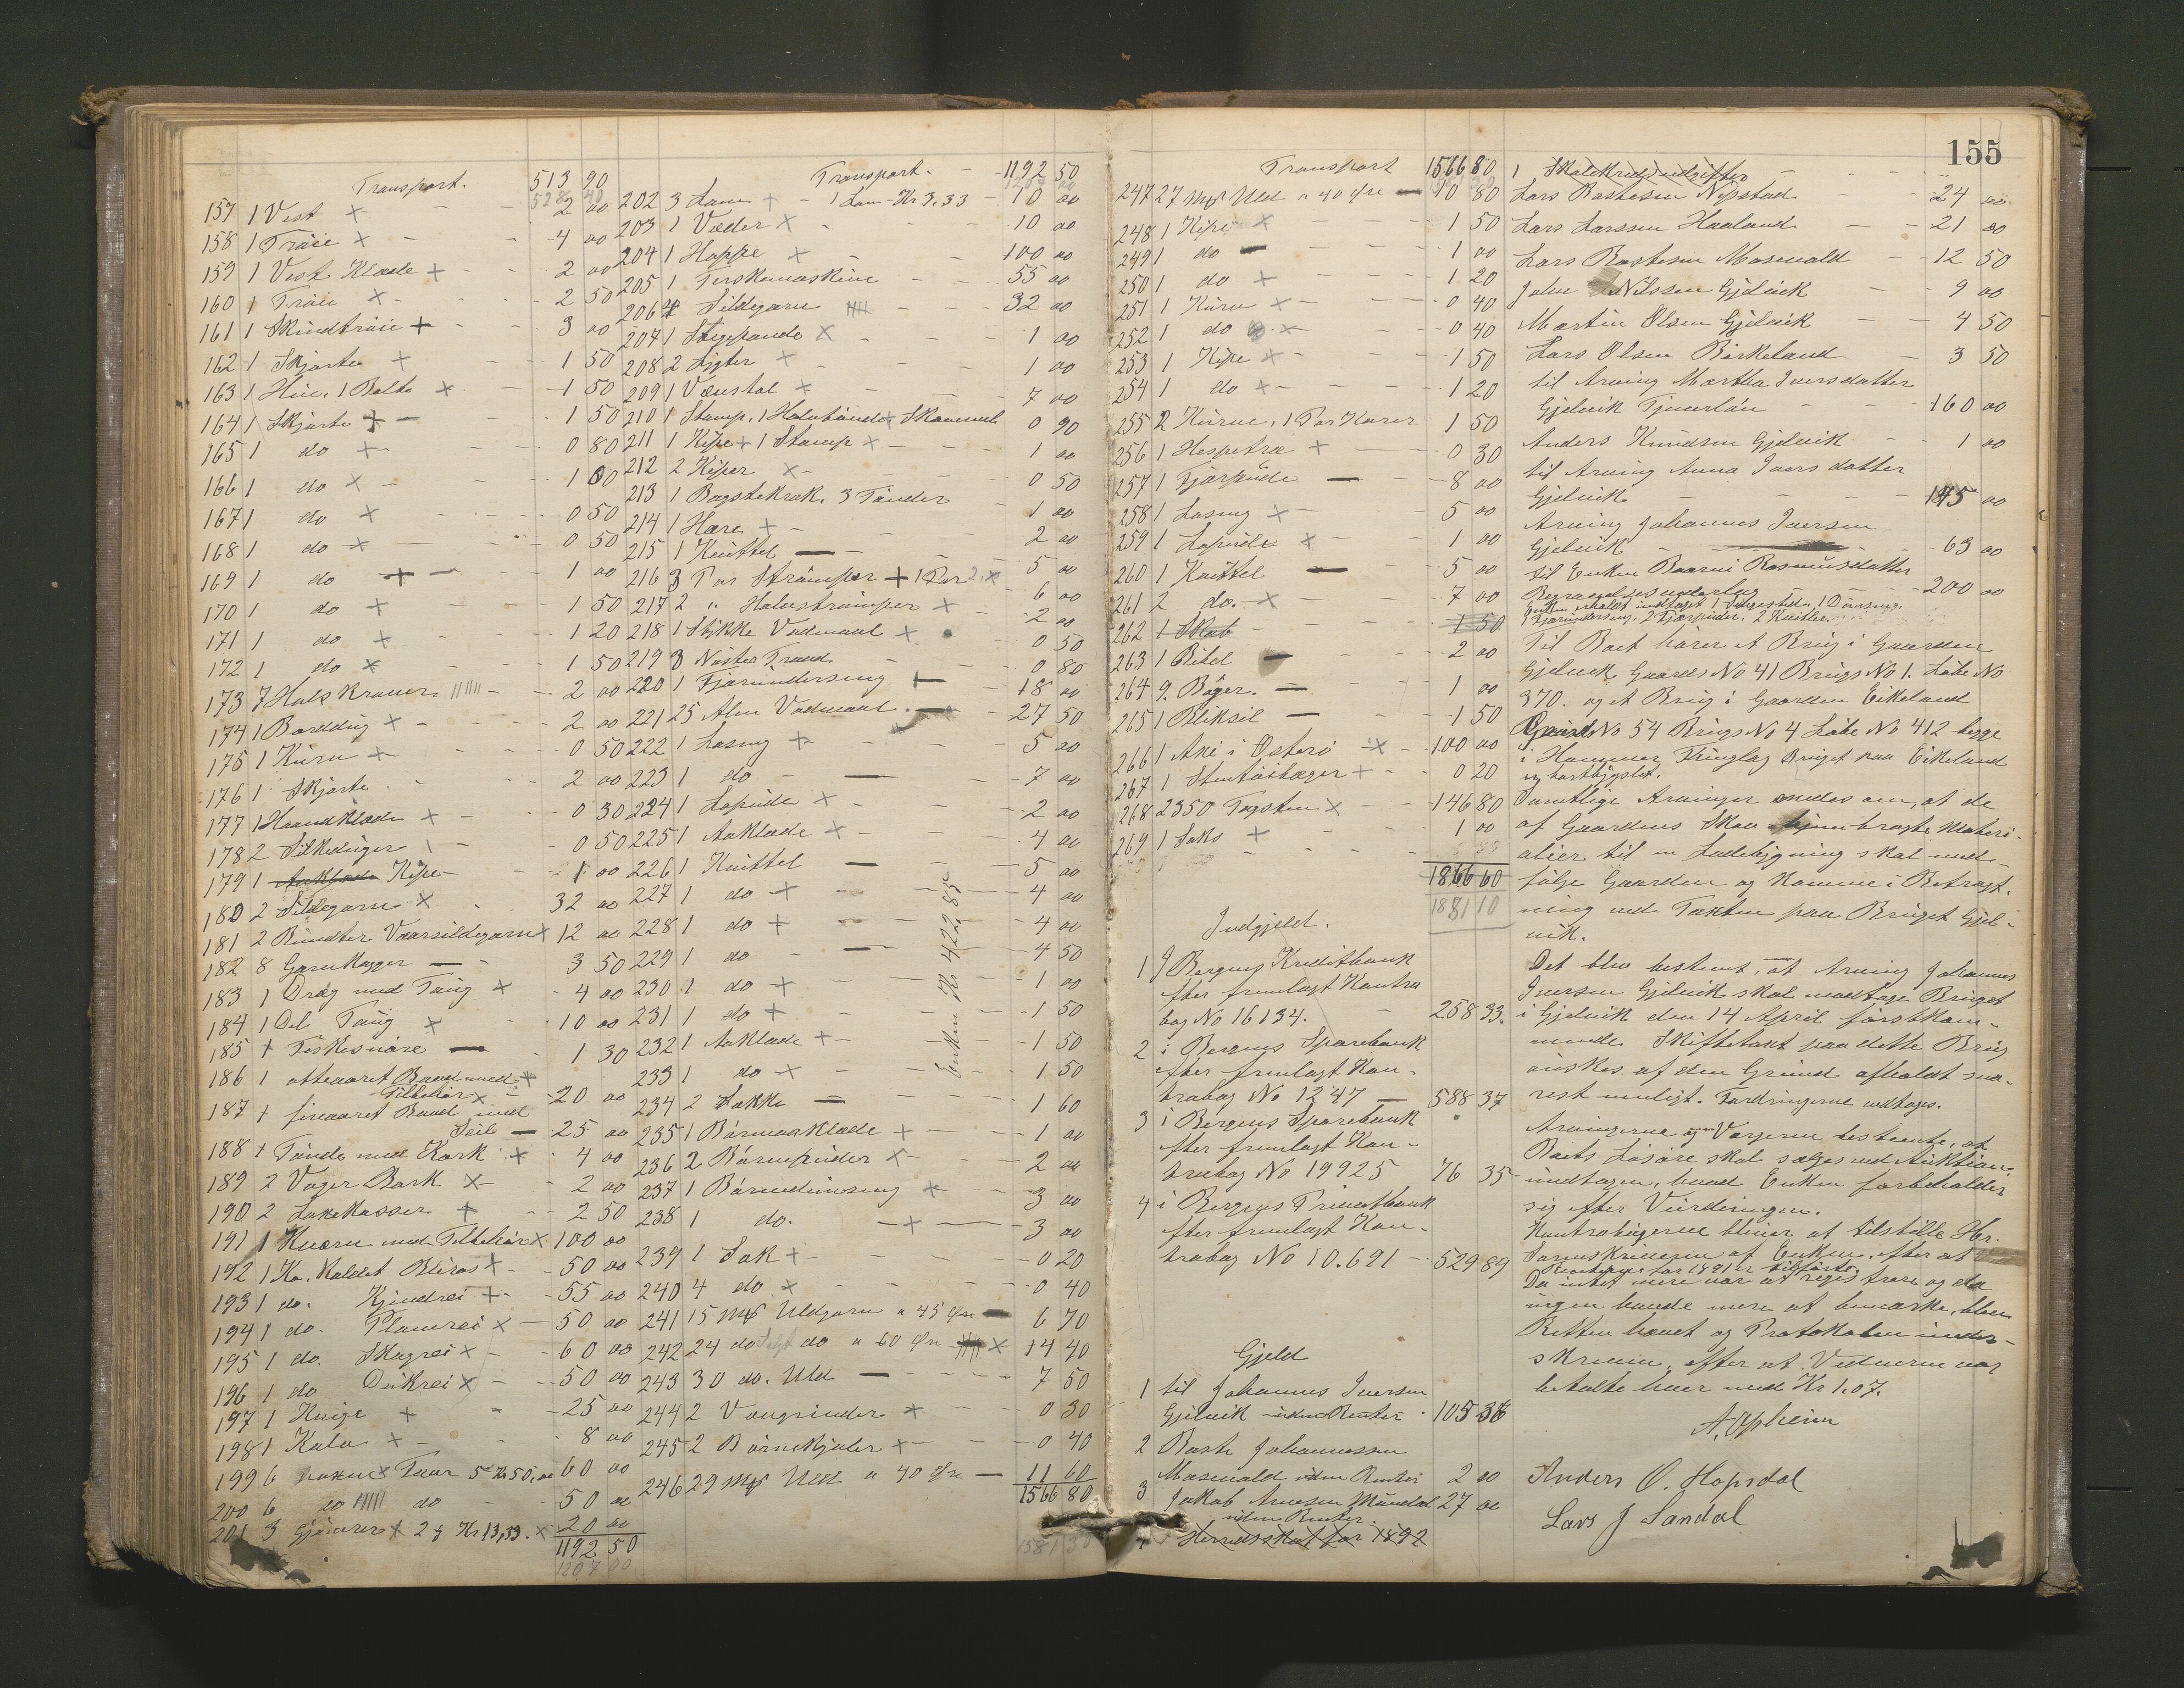 Transport. 513 90
157 1 Vest 2 00
158 1 Trøie 4 00
159 1 Vest Klæde 2 00
160 1 Trøie 2 50
161 1 Skindtrøie 3 00
162 1 Skjorte 1 50
163 1 Hue, 1 Belte 1 50
164 1 Skjorte 1 50
165 1 do 0 80
166 1 do 1 00
167 1 do 0 50
168 1 do 0 50
169 1 do 1 00
170 1 do 1 50
171 1 do 1 20
172 1 do 1 50
173 7 Halskraver 2 00
174 1 Borddug 2 00
175 1 Kurv 0 50
176 1 Skjorte 2 00
177 1 Haandklæde 0 30
178 2 Silkeduger 0 50
179 1 Kipe 1 00
180 2 Sildegarn 32 00
181 2 Bundter Vaarsildegarn 12 00
182 8 Garnkagger 3 50
183 1 Drag med Taug 4 00
184 1 Del Taug 10 00
185 1 Fiskesnøre 1 30
186 1 otteaaret Baad med
Tilbehør 20 00
187 1 fireaaret Baad med
Seil 25 00
188 1 Tønde med Bark 4 00
189 2 Voger Bark 2 00
190 2 Laxekasser 2 50
191 1 Kværn med Tilbehør 100 00
192 1 Ko, kaldet Bliros 50 00
193 1 do. Kjindrei 55 00
194 1 do. Plomrei 50 00
195 1 do. Skagrei 60 00
196 1 do Deikrei 50 00
197 1 Kvige 25 00
198 1 Kalv 8 00
199 6 voxne Faar 60 00
200 6 do do 50 00
201 3 Gjømrer 2 Kr 13,33. 20 00
1192 50
1207 00
Transport. 1192 50
202 3 Lam 1 Lam - Kr 3,33 10 00
203 1 Væder 10 00
204 1 Hoppe 100 00
205 1 Terskemaskine 55 00
206 4 Sildegarn 32 00
207 1 Stegpande 1 00
208 2 Lygter 1 00
209 1 Vævstol 7 00
210 1 Stamp, 1 Halvtønde, Skammel 0 90
211 1 Kipe 1 Stamp 1 00
212 2 Kiper 0 50
213 1 Bagstekrak, 3 Tønder 1 00
214 1 Hære 2 00
215 1 Knittel 5 00
216 3 Par Strømper 1 Par 6 00
217 2 " Halvstrømper 2 00
218 1 Stykke Vadmaal 0 50
219 3 Nøster Traad 0 80
220 1 Fjærunderseng 18 00
221 25 Alen Vadmaal 27 50
222 1 Laseng 5 00
223 1 do 7 00
224 1 Lapude 2 00
225 1 Aaklæde 4 00
226 1 Knittel 5 00
227 1 do 4 00
228 1 do 4 00
229 1 do 4 50
230 1 do 1 00
231 1 do 1 50
232 1 Aaklæde 1 50
233 1 do 1 50
234 2 Sække 1 60
235 1 Børneaaklæde 1 00
236 2 Børnepuder 2 00
237 1 Børnedunseng 3 00
238 1 do. 3 00
239 1 Sak 0 20
240 4 do 0 40
241 15 Mrk Uldgarn a 45 Øre 6 70
242 24 do do a 60 Øre 14 40
243 30 do. Uld 7 50
244 2 Vævgrinder 0 30
245 2 Børnekjoler 0 40
246 29 Mrk Uld a 40 Øre 11 60
1566 80
Enken Kr 422,85
155
Transport 1566 80
247 27 Mrk Uld a 40 Øre 10 80
248 1 Kipe 1 50
249 1 do 1 00
250 1 do 1 20
251 1 Kurv 0 40
252 1 do 0 40
253 1 Kipe 1 50
254 1 do 1 20
255 2 Kurve, 1 Par Karer 1 50
256 1 Hespetræ 0 30
257 1 Fjærpude 8 00
258 1 Laseng 5 00
259 1 Lapude 1 00
260 1 Knittel 5 00
261 2 do. 7 00
262 1 Skab 1 50
263 1 Bibel 2 00
264 9 Bøger. 1 00
265 1 Bliksil 1 50
266 1 Axie i Osterø 100 00
267 1 Stentøibæger 0 20
268 2350 Tagsten 146 80
269 1 Saks 1 00
1866 60
1881 10
Indgjeld.
1 I Bergens Kreditbank
efter fremlagt Kontra
bog No 16134. 258 33.
2 i Bergens Sparebank
efter fremlagt Kon-
trabog No 1247 588 37
3 i Bergens Sparebank
efter fremlagt Kon-
trabog No 19925 76 35
4 i Bergens Privatbank
efter fremlagt Kon-
trabog No 10.691 529 89
Gjeld
1 til Johannes Iversen
Gjelvik uden Renter 105 38
2 Baste Johannessen
Masevald uden Renter 2 00
3 Jakob Arnesen Mundal 27 00
uden Renter.
4 Herredsskat for 1892
1 Skolekredsudgifter
Lars Bastesen Nipstad 24 00
Lars Larssen Haaland 21 00
Lars Bastesen Masevald 12 50
Johs Nilssen Gjelvik 9 00
Martin Olsen Gjelvik 4 50
Lars Olsen Birkeland 3 50
til Arving Martha Iversdatter
Gjelvik Tjenerløn 160 00
Anders Knudsen Gjelvik 1 00
til Arving Anna Iversdatter
Gjelvik 145 00
Arving Johannes Iversen
Gjelvik 63 00
til Enken Baarni Rasmusdatter
Begravelsesudlæg 200 00
Enken erholdt indtaget 1 Sengested, 1 Dunseng.
1 Fjærundersseng, 2 Fjærpuder, 2 Knitler.
Til Boet hører et Brug i Gaarden
Gjelvik Gaards No 41 Brugs No 1. Løbe No
370. og et Brug i Gaarden Eikeland
Gaards No 54 Brugs No 4 Løbe No 412 begge
i Hammer Thinglag Bruget paa Eikeland
er bortbygslet.
Samtlige Arvinger enedes om, at de
af Gaardens Skov hjembragte Materi-
alier til en Ladebygning skal med-
følge Gaarden og komme i Betragt-
ning ved Taxten paa Bruget Gjel-
vik.
Det blev bestemt, at Arving Johannes
Iversen Gjelvik skal modtage Bruget
i Gjelvik den 14 April førstkom-
mende. Skiftetaxt paa dette Brug
ønskes af den Grund afholdt sna-
rest muligt. Fordringerne vedtoges.
Arvingerne og Værgerne bestemte, at
Boets Løsøre skal sælges ved Auktion,
undtagen, hvad Enken forbeholder
sig efter Vurderingen.
Kontrabøgerne bliver at tilstille Hr.
Sorenskriveren af Enken, efter at
Renterne for 1891 er tilførte.
Da intet mere var at registrere og da
ingen havde mere at bemærke, blev
Retten hævet og Protokolen under-
skreven, efter at Vidnerne var
betalte hver med Kr 1.07.
A. Opheim
Anders O. Hopsdal
Lars J Sandal